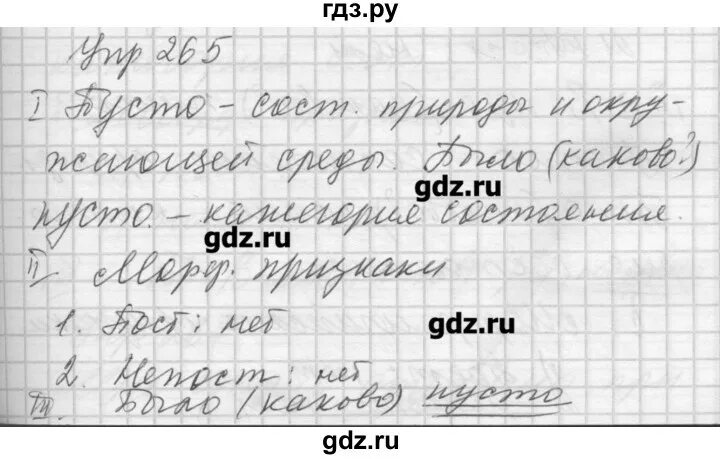 гдз.ру
Упр 265
I Пусто – сост. природы и окру-
жающей среды. Было (каково?)
gdz.ru
пусто. – категория состояния.
gdz.ru
II Морф. признаки
1. Пост: нет
gdz.ru
2. Непост: нет
III. Было (каково) пусто
gdz.ru